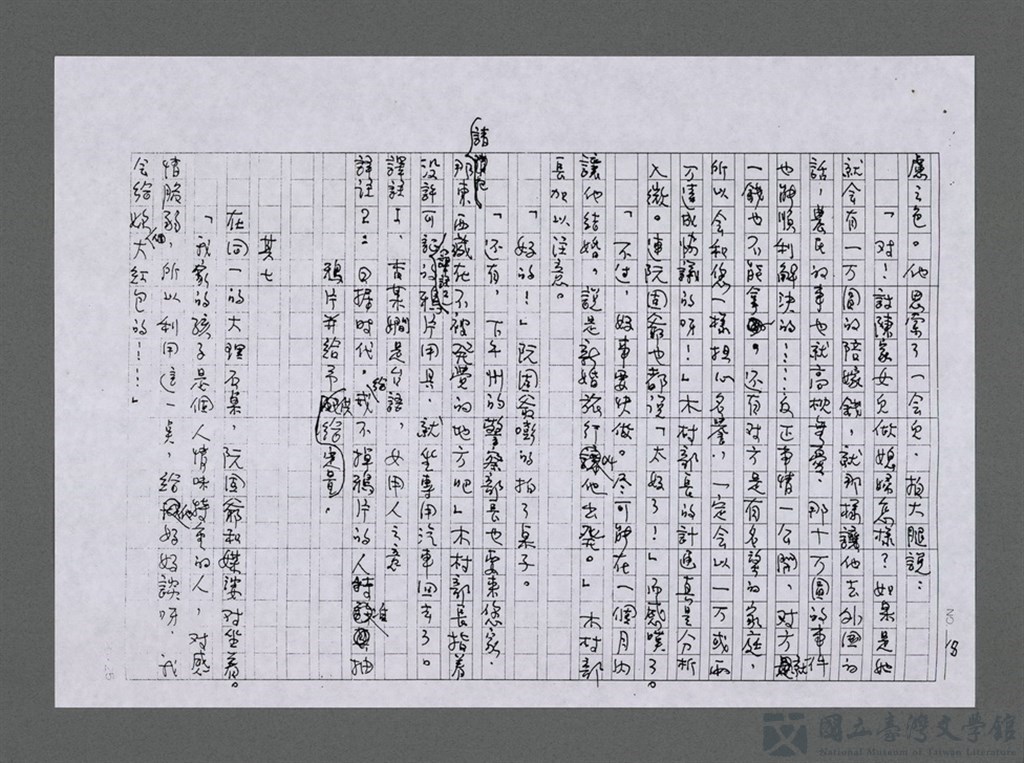 慮之色。他思索了一会兒，拍大腿說：
「对！討陳家女兒做媳婦怎樣？如果是她
就会有一万圓的陪嫁錢，就那樣讓他去外面的
話，農民的事也就高枕無憂，那十万圓的事件
也能順利解決的……这正事情一公開，对方就
一錢也不能拿。还有对方是有名望的家庭，
所以会和您一樣担心名譽，一定会以一万或兩
万達成協議的呀！」木村部長的計画真是分析
入微。連阮固爺也都說「太好了！」而感嘆了。
「不过，好事要快做。尽可能在一個月內
讓他結婚，說是新婚旅行叫他出発。」木村部
長加以注意。
「好的！」阮固爺嘭的拍了桌子。
「还有，下午州的警察部長也要來您家，
請那東西藏在不被発覚的地方吧」木村部長指着
沒許可証的鴉片用具，就坐專用汽車回去了。
譯註1、查某嫺是台語，女用人之意
譯註2：日據時代，給戒不掉鴉片的人抽
鴉片并給予
其七
在同一的大理石桌，阮固爺和媒婆对坐着。
「我家的孩子是個人情味特重的人，对感
情脆弱，所以利用這一點，給他好好談呀，我
会給妳大紅包的！……」
18
國立臺灣文學館
National Museum of Taiwan Literature